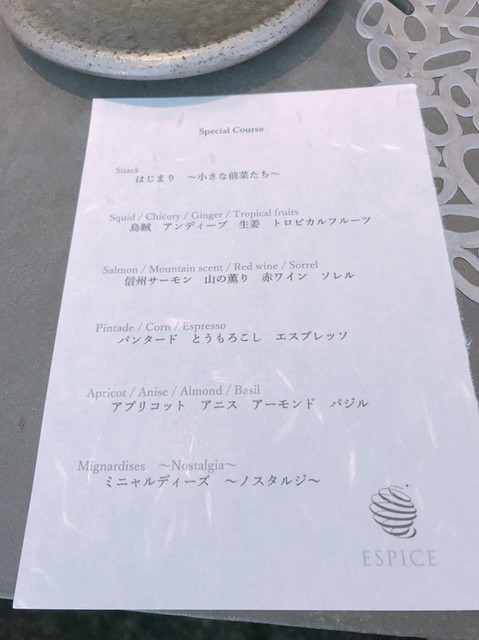 Special Course
Snack
はじまり　～小さな前菜たち～
Squid / Chicory / Ginger / Tropical fruits
烏賊　アンディーブ　生姜　トロピカルフルーツ
Salmon / Mountain scent / Red wine / Sorrel
信州サーモン　山の薫り　赤ワイン　ソレル
Pintade / Corn / Espresso
パンタード　とうもろこし　エスプレッソ
Apricot / Anise / Almond / Basil
アプリコット　アニス　アーモンド　バジル
Mignardises　～Nostalgia～
ミニャルディーズ　～ノスタルジ～
ESPICE